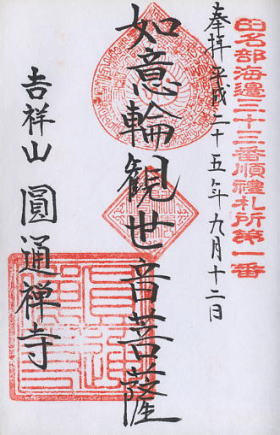 田名部海邊三十三番順禮札所第一番
奉拝 平成二十五年九月十二日
如意輪觀世音菩薩
吉祥山 圓通禅寺